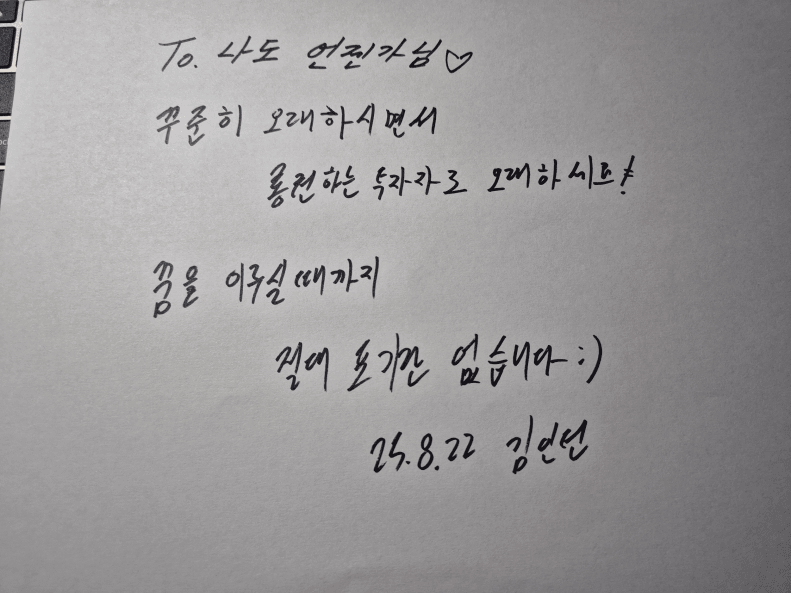 To. 나도 언젠가님♡
꾸준히 오래하시면서
롱런하는 투자자로 오래하시죠!
꿈을 이루실때까지
절대 포기란 없습니다 :)
25.8.22 김인턴